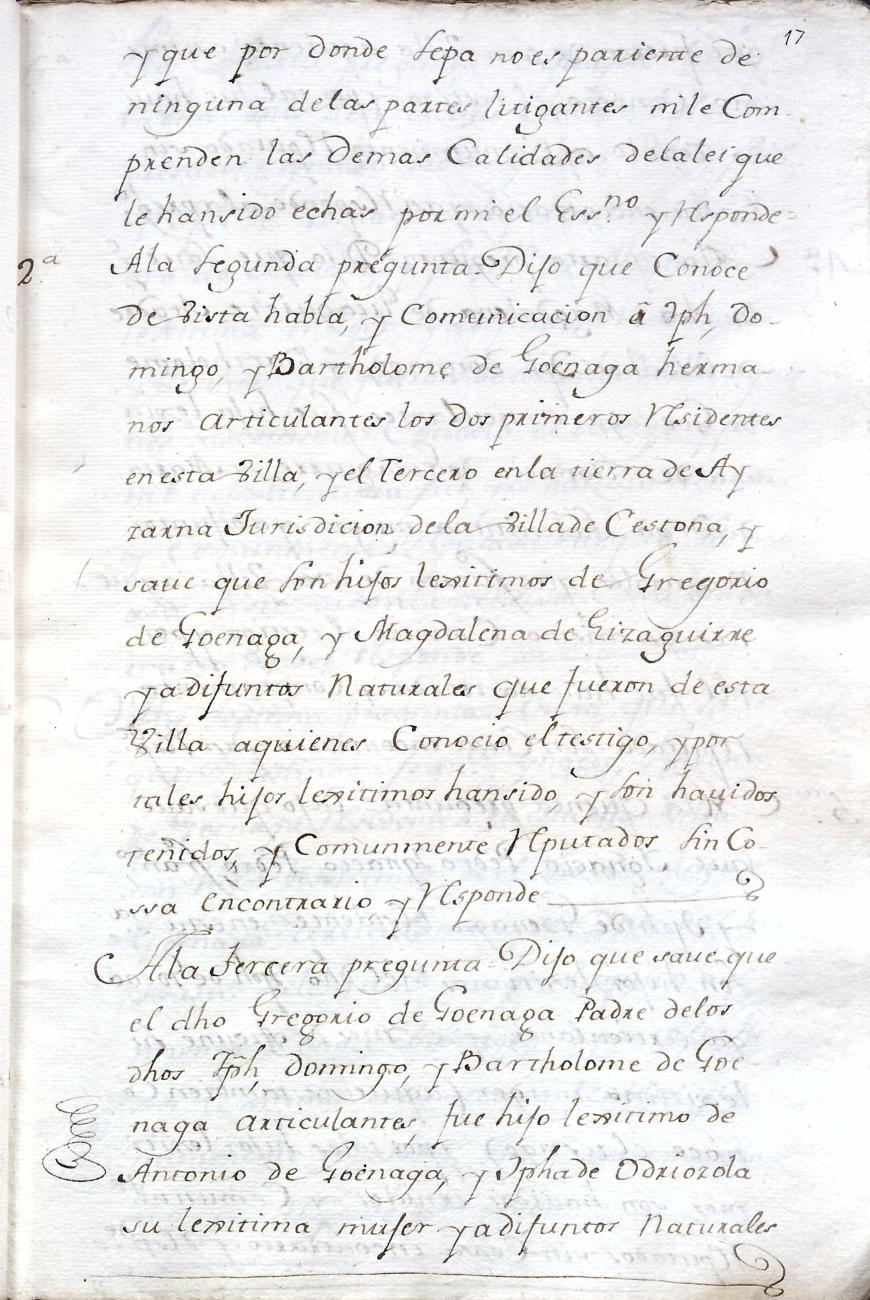 17
y que por donde sepa no es pariente de
ninguna de las partes litigantes ni le Com
prenden las Demas Calidades de la lei que
le han sido echas por mi el Essno y Responde=
2a Ala segunda pregunta Dijo que Conoce
de vista habla, y Comunicacion â Jph, Do-
mingo, y Bartholome de Goenaga herma-
nos articulantes los dos primeros Residentes
en esta villa, y el Tercero en la tierra de Ay
zarna Jurisdicion de la villa de Cestona, y
save que son hijos lexitimos de Gregorio
de Goenaga, y Magdalena de Eizaguirre
ya difuntos Naturales que fueron de esta
villa a quienes Conocio el testigo, y por
tales hijos lexitimos han sido y son havidos
tenidos, y Comunmente Reputados sin Co-
ssa en contrario y Responde
Ala tercera pregunta Dijo que save que
el dho Gregorio de Goenaga Padre de los
dhos Jph, Domingo, y Bartholome de Goe-
naga articulantes, fue hijo lexitimo de
Antonio de Goenaga, y Jpha de Odriozola
su lexitima mujer ya difuntos Naturales